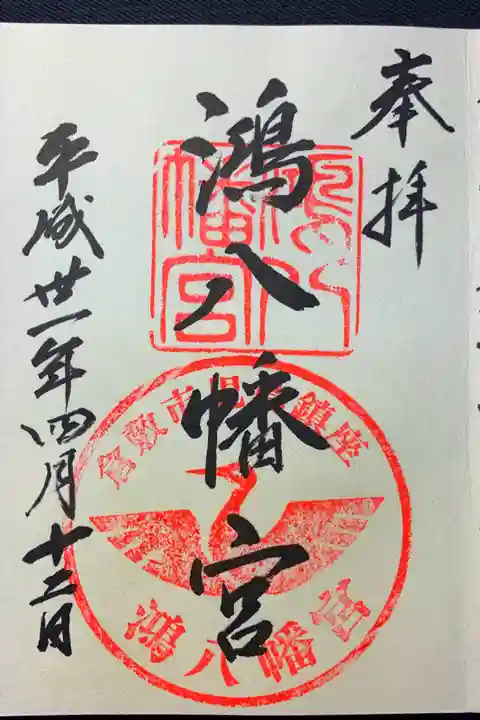 奉拝
鴻八幡宮
平成丗一年四月十二日
倉敷市児島鎮座
鴻八幡宮
鴻八幡宮